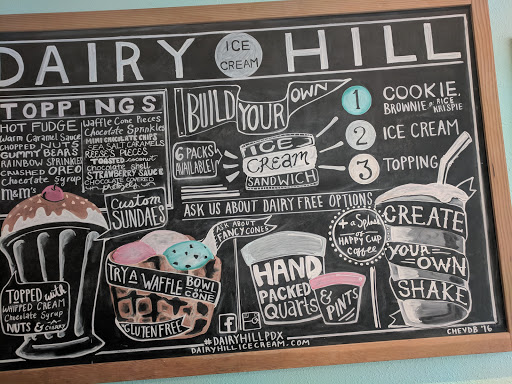 DAIRY HILL
ICE
CREAM
TOPPINGS
HOT FUDGE
Warm Caramel Sauce
CHOPPED NUTS
GUMMY BEARS
RAINBOW SPRINKLES
CRUSHED OREO
Chocolate Syrup
M&M's
Waffle Cone Pieces
Chocolate Sprinkles
MINI CHOCOLATE CHIPS
SEA SALT CARAMELS
REESE'S PIECES
TOASTED coconut
chocolate shell
STRAWBERRY SAUCE
CHOCOLATE COVERED
pretzels
BUILD YOUR OWN
6 PACKS
AVAILABLE!
ICE
CREAM
SANDWICH
1 COOKIE,
BROWNIE, or RICE
KRISPIE
2 ICE CREAM
3 TOPPING
ASK US ABOUT DAIRY FREE OPTIONS
Custom
SUNDAES
TOPPED with
WHIPPED CREAM
Chocolate Syrup
NUTS & a CHERRY
ASK ABOUT
FANCY CONES
TRY A WAFFLE BOWL
or CONE
GLUTEN FREE
HAND
PACKED
QUARTS
& PINTS
+ a Splash
of
HAPPY CUP
COFFEE
CREATE
YOUR
OWN
SHAKE
f
#DAIRYHILLPDX
DAIRYHILLICECREAM.COM
CHEYDB '16